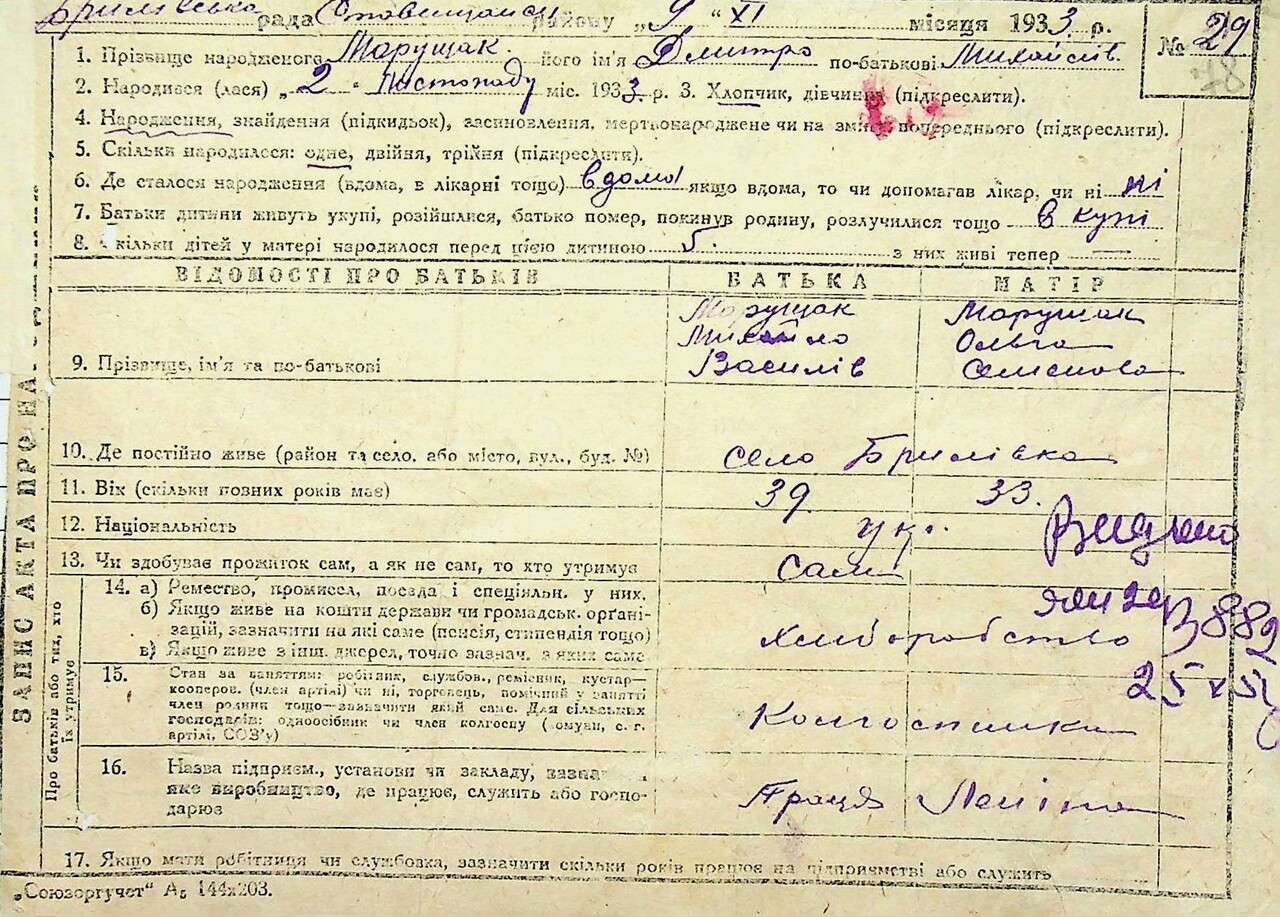 Бримівська рада Ставищанськ району „9“ XI місяця 1933 р.
№ 29
1. Прізвище народженого Марущак його ім'я Дмитро по-батькові Михайлів.
2. Народився (лася) „2“ Листопаду міс. 1933 р. 3. Хлопчик, дівчина (підкреслити).
4. Народження, знайдення (підкидьок), засиновлення, мертвонароджене чи на зміну попереднього (підкреслити).
5. Скільки народилося: одне, двійня, трійня (підкреслити).
6. Де сталося народження (вдома, в лікарні тощо) вдома якщо вдома, то чи допомагав лікар, чи ні ні
7. Батьки дитини живуть укупі, розійшлися, батько помер, покинув родину, розлучилися тощо в купі
8. скільки дітей у матері народилося перед цією дитиною 5. з них живі тепер —
ВІДОМОСТІ ПРО БАТЬКІВ БАТЬКА МАТІР
Марущак Марущак
Михайло Ольга
9. Прізвище, ім'я та по-батькові Василів Семенова
10. Де постійно живе (район та село, або місто, вул., буд. №) село Бримівка
11. Вік (скільки повних років має) 39 33.
12. Національність укр. Видано
13. Чи здобуває прожиток сам, а як не сам, то хто утримує Сами
14. а) Ремество, промисел, посада і спеціяльн. у них.
б) Якщо живе на кошти держави чи громадськ. орґані-
зацій, зазначити на які саме (пенсія, стипендія тощо) хліборобство
в) Якщо живе з інш. джерел, точно зазнач. з яких саме
25 X 5
15. Стан за заняттям: робітник, службов., ремісник, кустар-
кооперов. (член артілі) чи ні, торговець, помічний у занятті
член родини тощо—зазначити який саме. Для сільських
господарів: одноосібник чи член колгоспу (комуни, с. г.
артілі, СОЗ'у) Колгоспники
16. Назва підприєм., установи чи закладу,
яке виробництво, де працює, служить або госпо-
дарює Праця Леніна
17. Якщо мати робітниця чи службовка, зазначити скільки років працює на підприємстві або служить
„Союзоргучет“ А₅ 144х203.
ЗАПИС АКТА ПРО НА
Про батьків або тих, хто
їх утримує